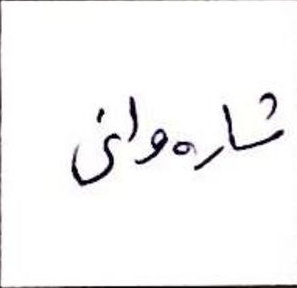 شارەوانی